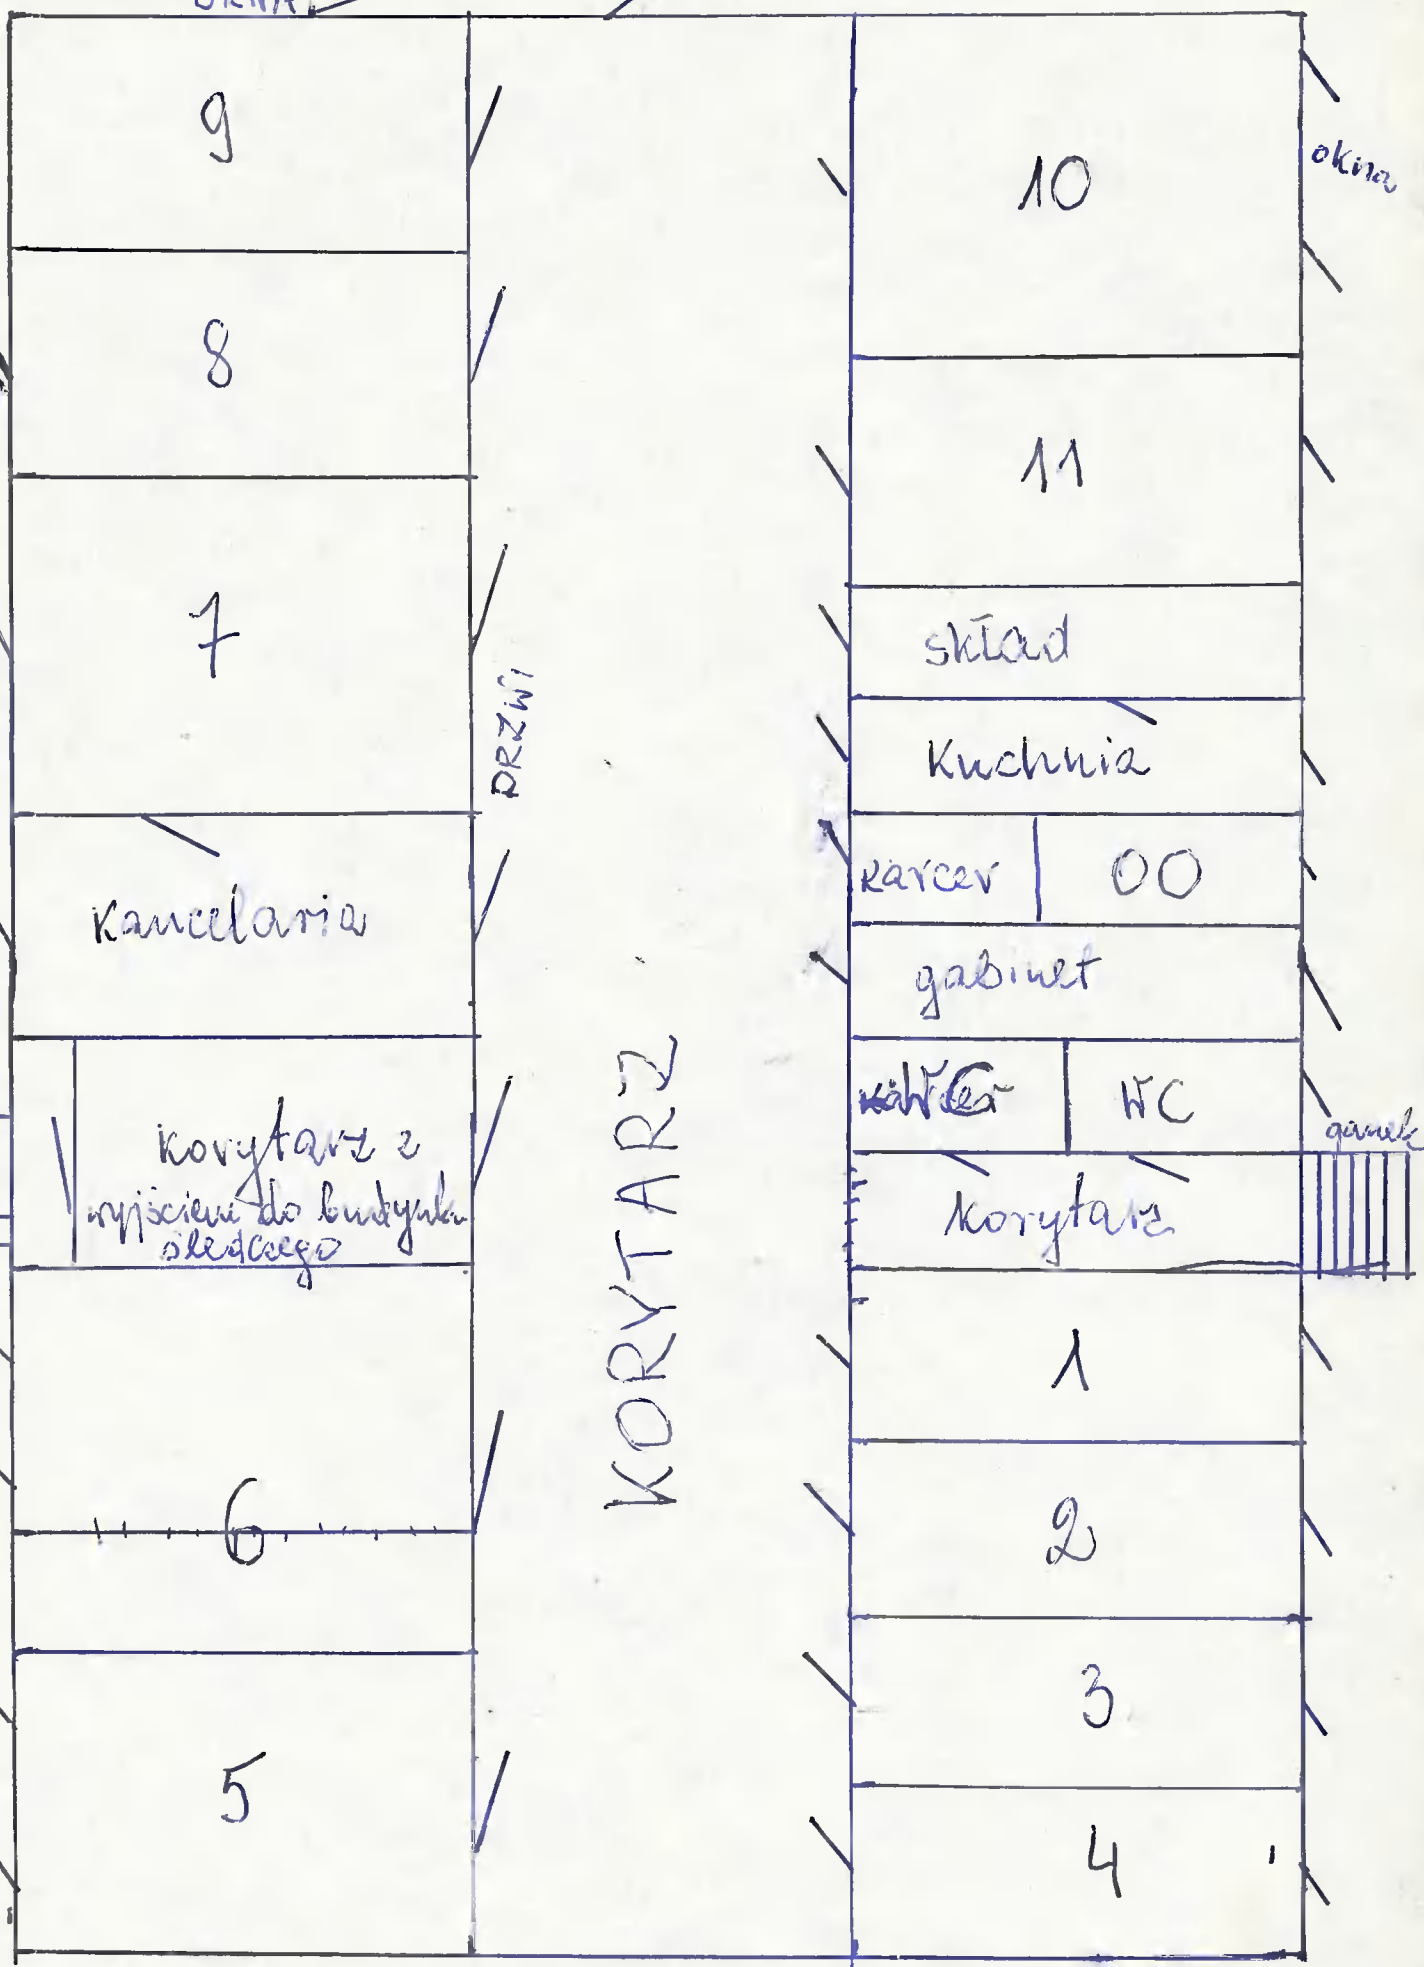 OKNA
9
8
7
DRZWI
kancelaria
korytarz z
wyjściem do budynku
śledczego
6
5
KORYTARZ
10
okna
11
skład
Kuchnia
karcer
OO
gabinet
WC
WC
ganek
korytarz
1
2
3
4